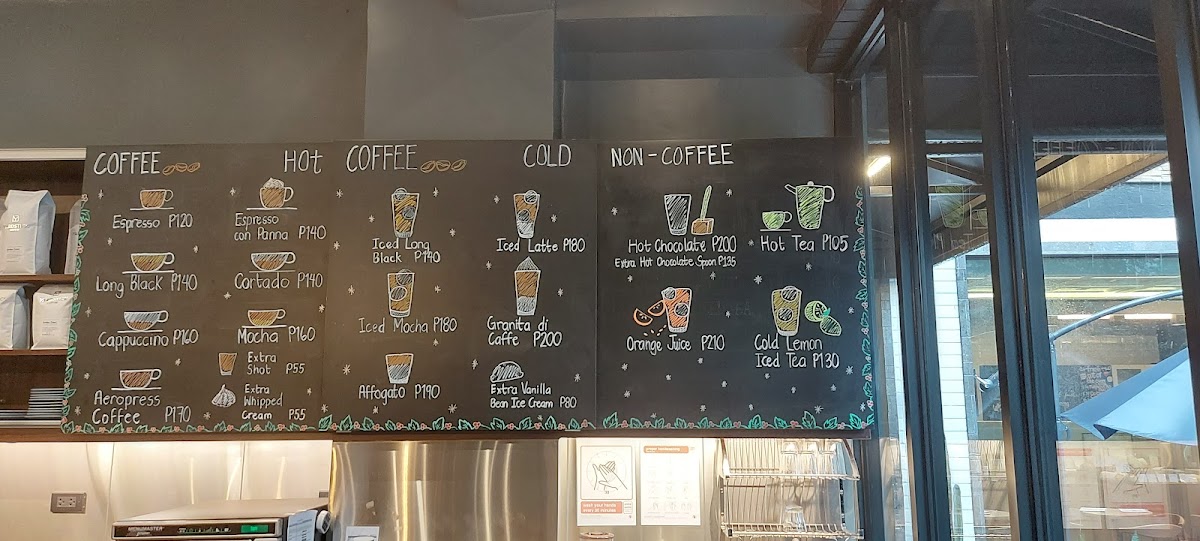 COFFEE HOT
Espresso P120
Espresso
con Panna P140
Long Black P140
Cortado P140
Cappuccino P160
Mocha P160
Extra
Shot P55
Aeropress
Coffee P170
Extra
Whipped
Cream P55
COFFEE COLD
Iced Long
Black P140
Iced Latte P180
Iced Mocha P180
Granita di
Caffe P200
Affogato P190
Extra Vanilla
Bean Ice Cream P80
NON-COFFEE
Hot Chocolate P200
Extra Hot Chocolate Spoon P135
Hot Tea P105
Orange Juice P210
Cold Lemon
Iced Tea P130
MENUMASTER